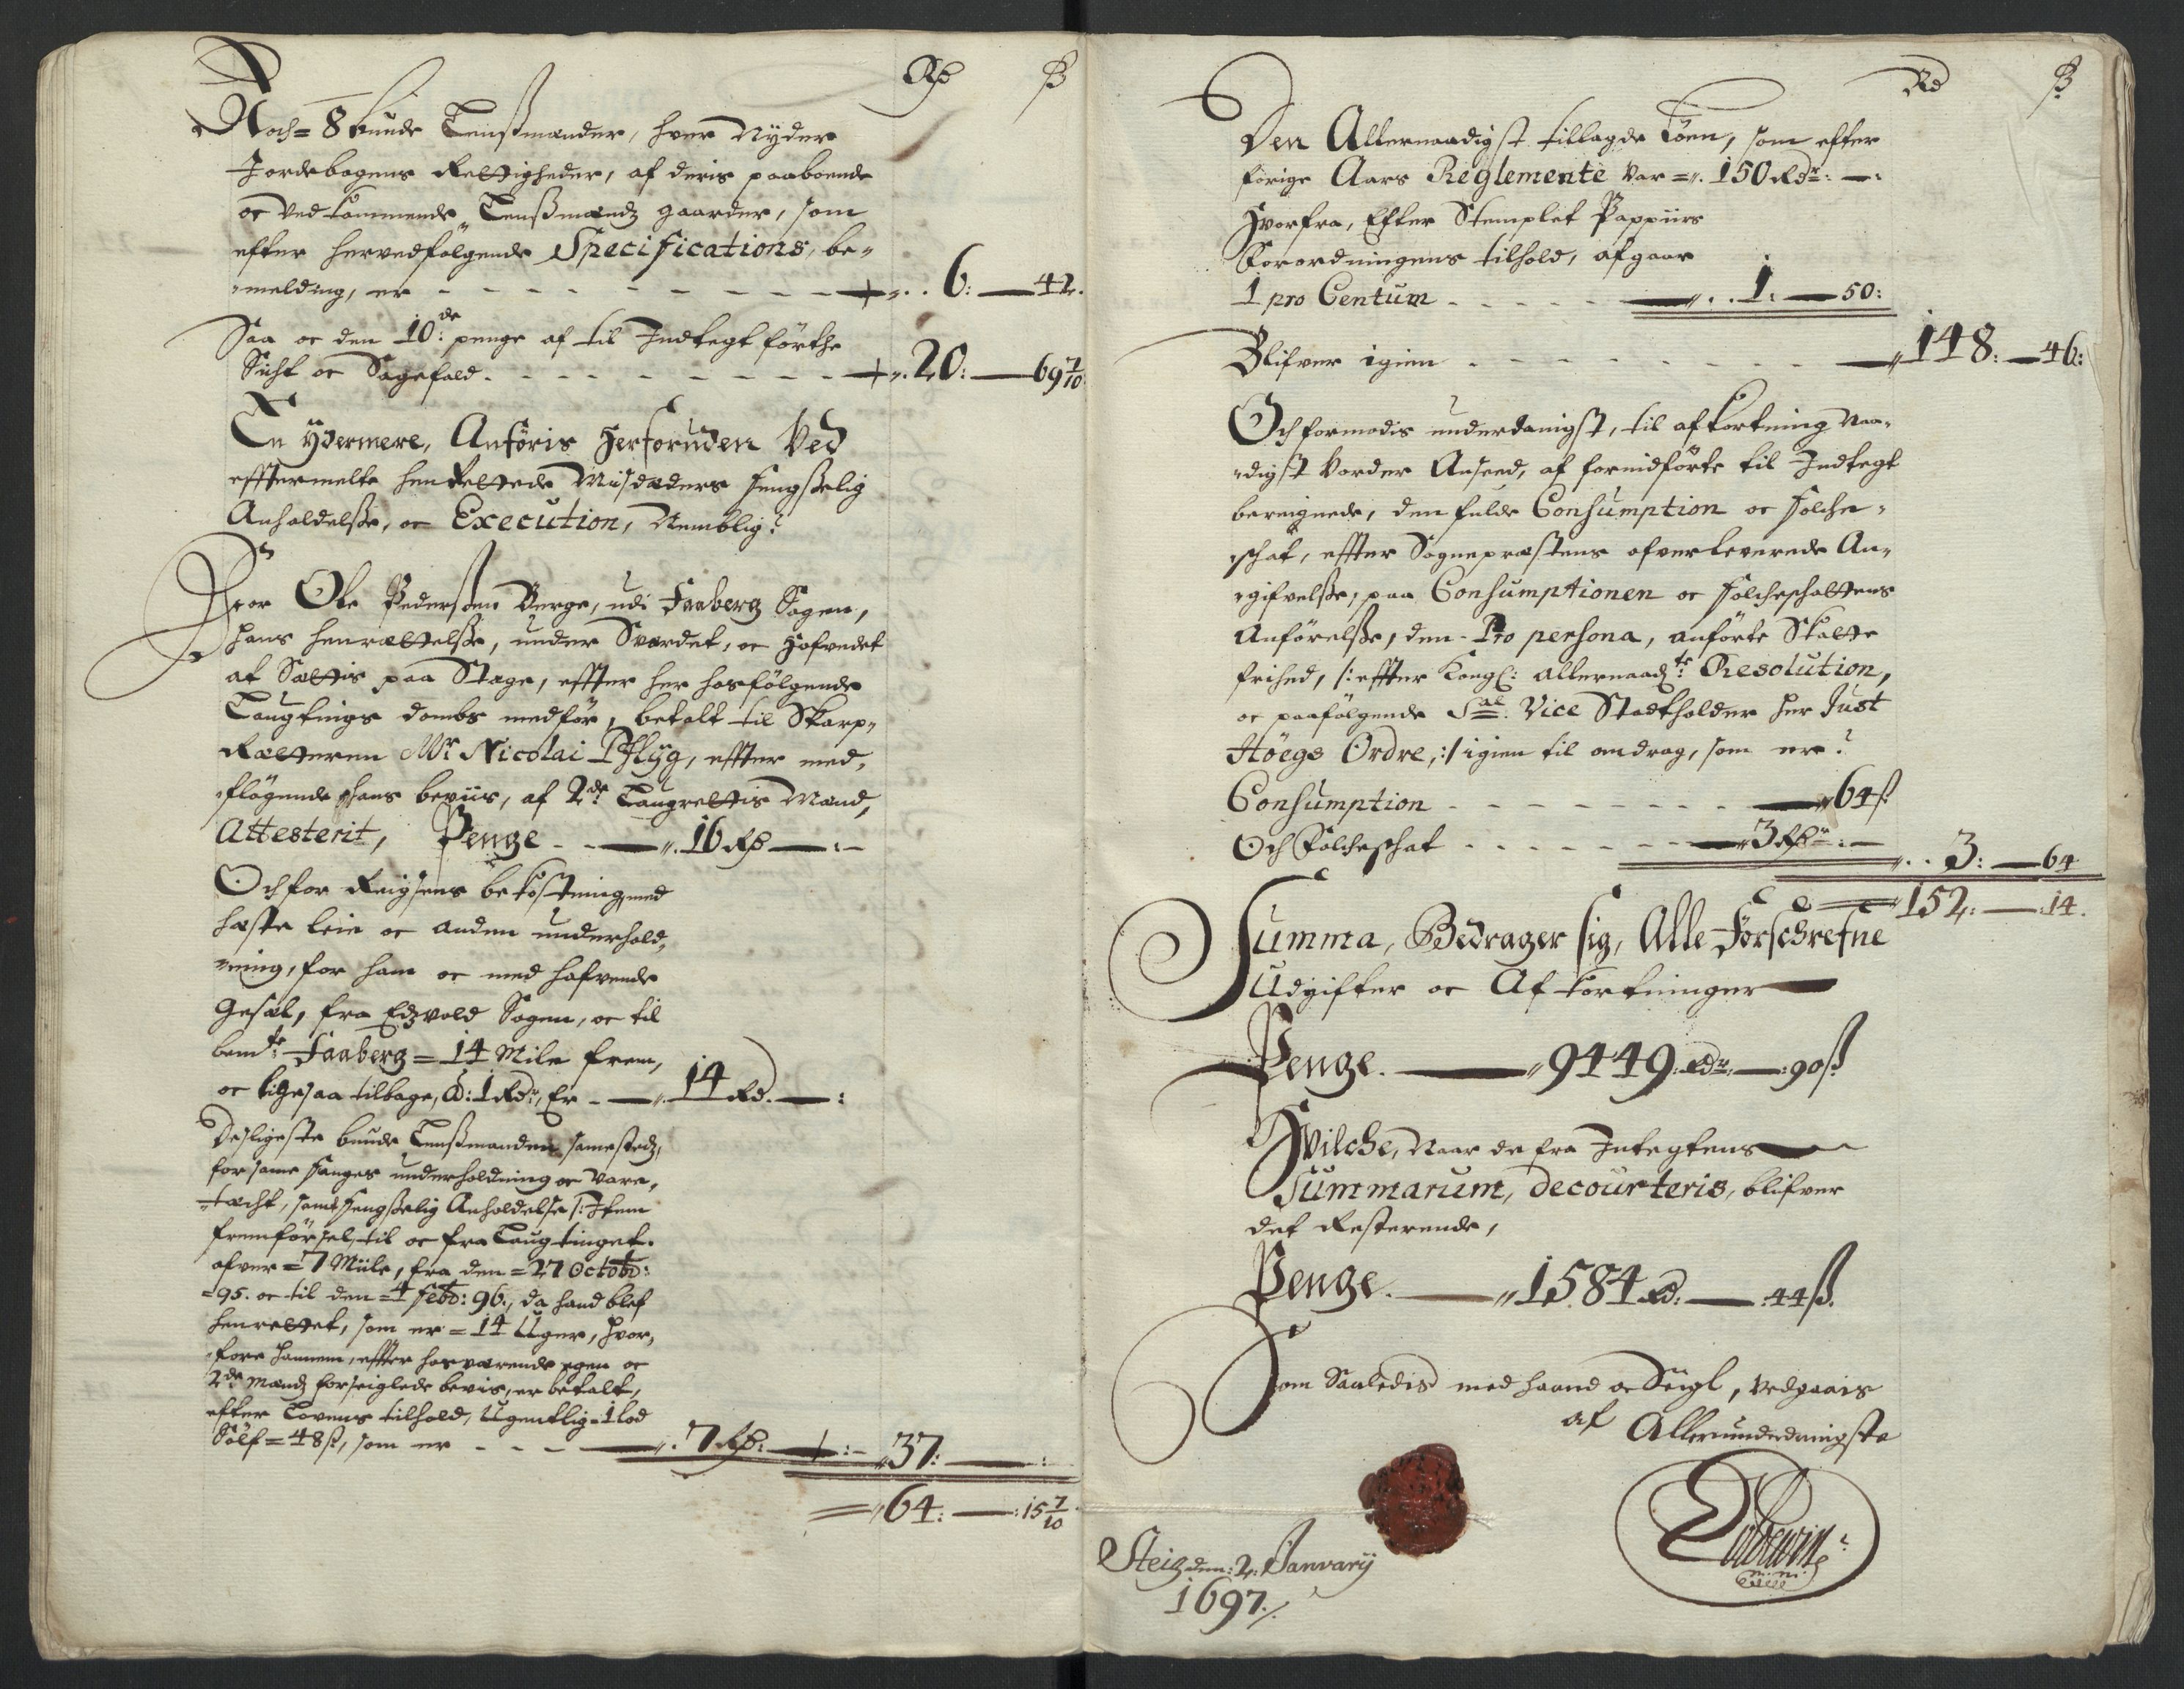 Rd ß
Noch = 8 buude Lenßmænder, hver Nyder
Jordebogens Rettigheder, af deris paaboende
oc ved kommende Lenßmændz gaarder, som
efter hervedfølgende Specifications, be-
melding, er - - - 6: — 42.
Saa oc den 10de: penge af til Indtegt førthe
Sicht oc Sagefald. - - - 20: — 69 7/10
En ÿdermere, Anføris Herforuden Ved
efftermelte henrettede Misdæders fengßelig
Anholdelße, oc Execution, Nemblig:
For Ole Pederßen Berge, udi Faaberg Sogen,
hans henrættelße, under Sverdet, oc Hofvedet
at Sættis paa Stage, effter her hosfølgende
Laugtings dombs medfør, betalt til Skarp-
Rætteren Mr Nicolai Pflÿg, effter med-
fløgende hans beviis, af 2de Laugrettis Mænd,
Attesterit, Penge - - 16 Rd — : —
Och for Reigsens bekostning, med
hæste leie oc anden underhold-
ning, for ham oc med hafvende
Gesæl, fra Edzvold Sogen, oc til
bemte: Faaberg = 14 Mile frem,
oc ligesaa tilbage, à: 1 Rdr, Er - — 14 Rd. — :
Desligeste buude Lenßmanden samestedz,
for samme fanges underholdning oc vare-
tæcht, samt fengßelig Anholdelse /: Item
fremførsel, til oc fra Laugtinget.
ofver = 7 Miile, fra den = 27 Octobr:
= 95. oc til den = 4 Febr: 96., da hand blef
henrettet, som er = 14 Uger, hvor-
fore hannem, effter hosværende egen oc
2de mændz forseiglede bevis, er betalt,
efter Lovens tilhold, Ugentlig = 1 lod
Sølf = 48 ß, som er - - - 7 Rd: — : — 37: — :
64: — : 15 7/10
Rd ß
Den Allernaadigst tillagde Løen, som efter
forige Aars Reglemente var = 150 Rdr: — :
Hvorfra, Efter Stemplet Pappiirs
Forordningens tilhold, afgaar
1 pro Centum - - - 1: — 50:
Blifver igien - - - 148: — 46:
Och formodis underdanigst, til afkortning Naa-
digst vorder Anseed, af formidførte til Indtegt
beregnede, den fulde Consumption oc folche-
schat, effter Sogneprestens ofverleverede An-
gifvelße, paa Consumptionen oc folcheschattens
Anførelße, den Pro persona, anførte Skatte
frihed, /: effter Kongl: allernaadte: Resolution,
oc paafølgende Sal: Vice Stadtholder Her Just
Høegs Ordre, :/ igien til andrag, som er:
Consumption - - - 64 ß
Och Folcheschat - - - 3 Rdr: —
3: — 64
152: — : 14.
Summa, Bedrager sig, Alle Forschrefne
Udgifter oc Afkortninger
Penge. — 9449 Rdr — : 90 ß
Hvilche, Naar de fra Integtens
Summarum, decourteris, blifver
det Resterende,
Penge. — 1584 Rd. — : 44 ß.
Som Saaledis med haand oc Seigl, vedgaais
af Allerunderdanigste
Steig den: 2. Januarij
1697./.